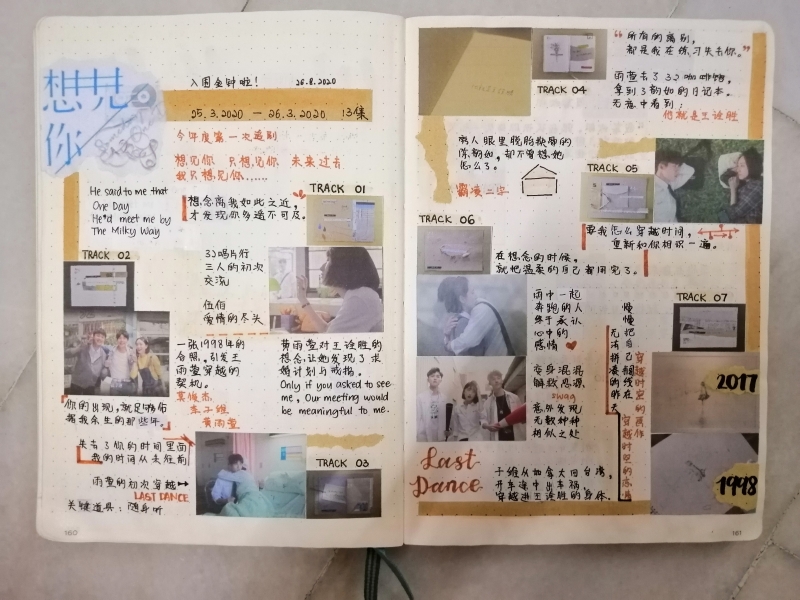 想見你
入围金钟啦！ 26.8.2020
25.3.2020 — 26.3.2020 13集
今年度第一次追剧
想见你 只想见你 未来过去
我只想见你……
He said to me that
One Day
He'd meet me by
The Milky Way
TRACK 01
想念离我如此之近，
才发现你多遥不可及。
TRACK 02
32唱片行
三人的初次
交流
伍佰
爱情的尽头
一张1998年的
合照，引发王
雨萱穿越的
契机。
莫俊杰
李子维
黄雨萱
黄雨萱对王诠胜的
想念，让她发现了求
婚计划与戒指。
Only if you asked to see
me, Our meeting would
be meaningful to me.
你的出现，就足够布
置我余生的那些年。
失去了你的时间里面
我的时间从未往前
雨萱的初次穿越
LAST DANCE
关键道具：随身听
TRACK 03
160
TRACK 04
“所有的离别，
都是我在练习失去你。”
雨萱去了32咖啡馆，
拿到了韵如的日记本。
无意中看到：
他就是王诠胜
两人眼里脱胎换骨的
陈韵如，却不曾想她
怎么了。
霸凌二字
TRACK 05
要我怎么穿越时间，
重新和你相识一遍。
TRACK 06
在想念的时候，
就把温柔的自己都用完了。
雨中一起
奔跑的人
终于承认
心中的
感情
TRACK 07
慢慢把自己凌乱的线
无法拼凑的昨天
穿越时空的画作
穿越时空的
2017
1998
变身混混
解救思源
swag
意外发现
无数种种
相似之处
Last
Dance
子维从加拿大回台湾，
开车途中出车祸，
穿越进王诠胜的身体。
161